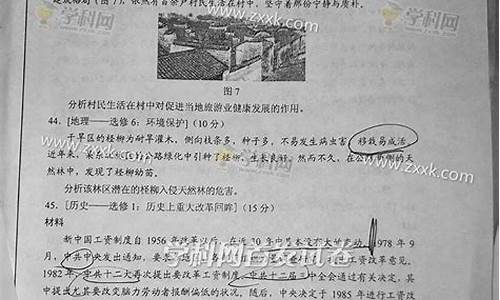 建成格局(图7),依然有百余户村民生活在村中,坚守着那份宁静与质朴。
图7
分析村民生活在村中对促进当地旅游业健康发展的作用。
44. [地理——选修6:环境保护](10分)
干旱区的柽柳为耐旱灌木,侧向枝条多,种子多,不易发生病虫害,移栽易成活。
近年来,某 公路绿化中引种了柽柳,生长良好。然而不久,在公路 侧的天
然林中,发现了柽柳幼苗。
分析该林区潜在的柽柳入侵天然林的危害。
45. [历史——选修1:历史上重大改革回眸](15分)
材料
新中国工资制度自1956年改革以后,在近30年中基本没有大的变动。1978年9
月,中共中央发出通知,要 工资改革意见。
1982年,中共十二大再次提出要改革工资制度。中共十二届三中全会通过有关决定,其
中提出尤其要改变脑力劳动者报酬偏低的状况。随后,中央决定于1985年进行工资改
学科网
www.zxxk.com
学科网
www.zxxk.com
www.zxxk.com
学科网
www.zxxk.com
学科网首发试卷